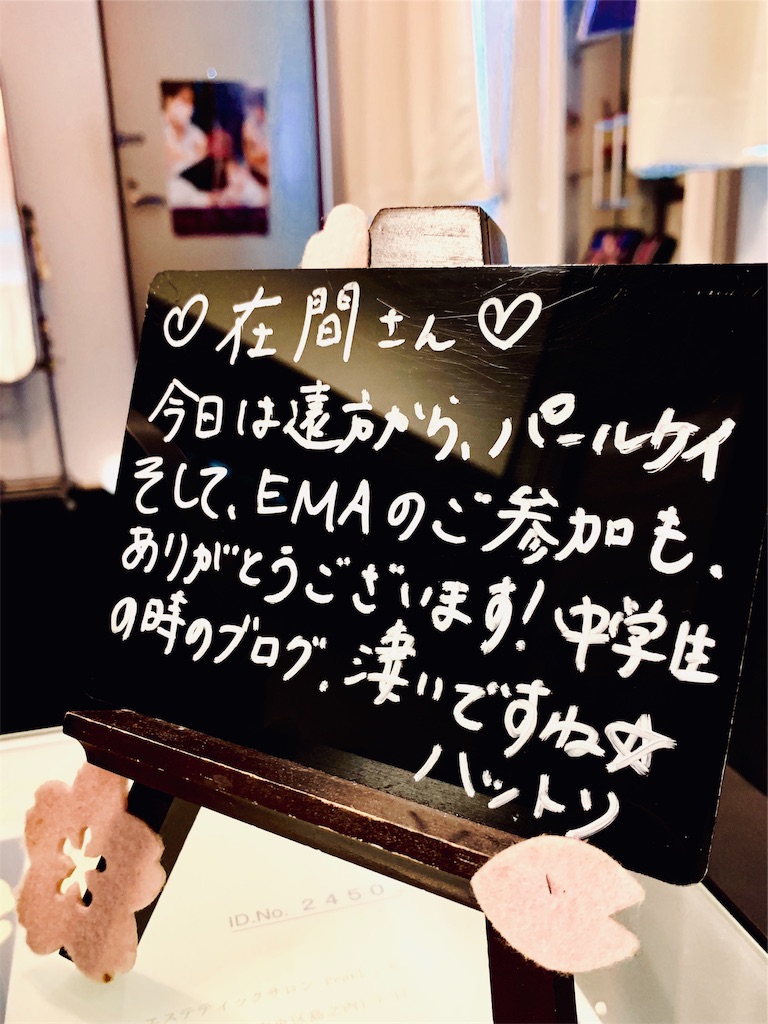 ♡在間さん♡
今日は遠方から、パールケイ
そして、EMAのご参加も、
ありがとうございます！中学生
の時のブログ、凄いですね☆
ハットリ
ID.No. 2450
エステティックサロン